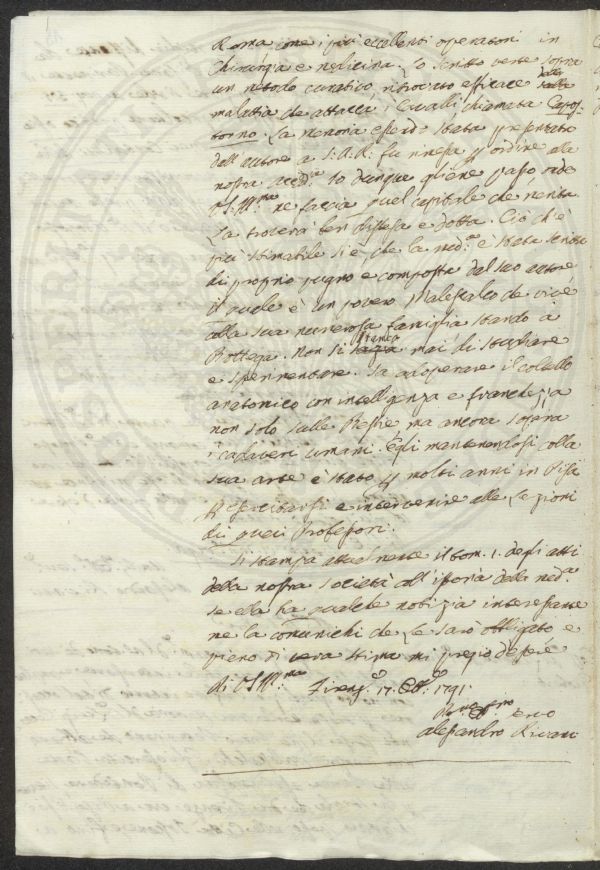 Roma, come i più eccellenti operatori in
Chirurgia e medicina. Lo scritto verte sopra
un metodo curativo ritrovato efficace della
malattia che attacca i Cavalli chiamata Capos-
torno. La memoria essendo stata presentata
dall'autore a S: A: R: fu rimessa p ordine alla
nostra Accad.ia Io dunque gliene passo, onde
V.S.Ill.ma ne faccia quel capitale che merita.
La troverà ben distesa e dotta. Ciò ch'è
più stimabile si è, che la med.a è stata scritta
di proprio pugno e composta dal suo autore
il quale è un povero Malescalco che vive
colla sua numerosa famiglia stando a
Bottega. Non si stanca mai di studiare
e sperimentare. Sa adoperare il coltello
anatomico con intelligenza e franchezza
non solo sulle Bestie ma ancora sopra
i cadaveri umani. Egli mantenendosi colla
sua arte è stato p molti anni in Pisa
ad esercitarsi e intervenire alle Lezioni
di quei Professori.
Si stampa attualmente il tom. 1. degli atti
della nostra società coll'istoria della med.a
se ella ha qualche notizia interessante
me la comunichi che Le sarò obbligato e
pieno di vera stima mi pregio d'essere
di V.S.Ill.ma Firenze 17. 1791.
servo
Alessandro Rivani